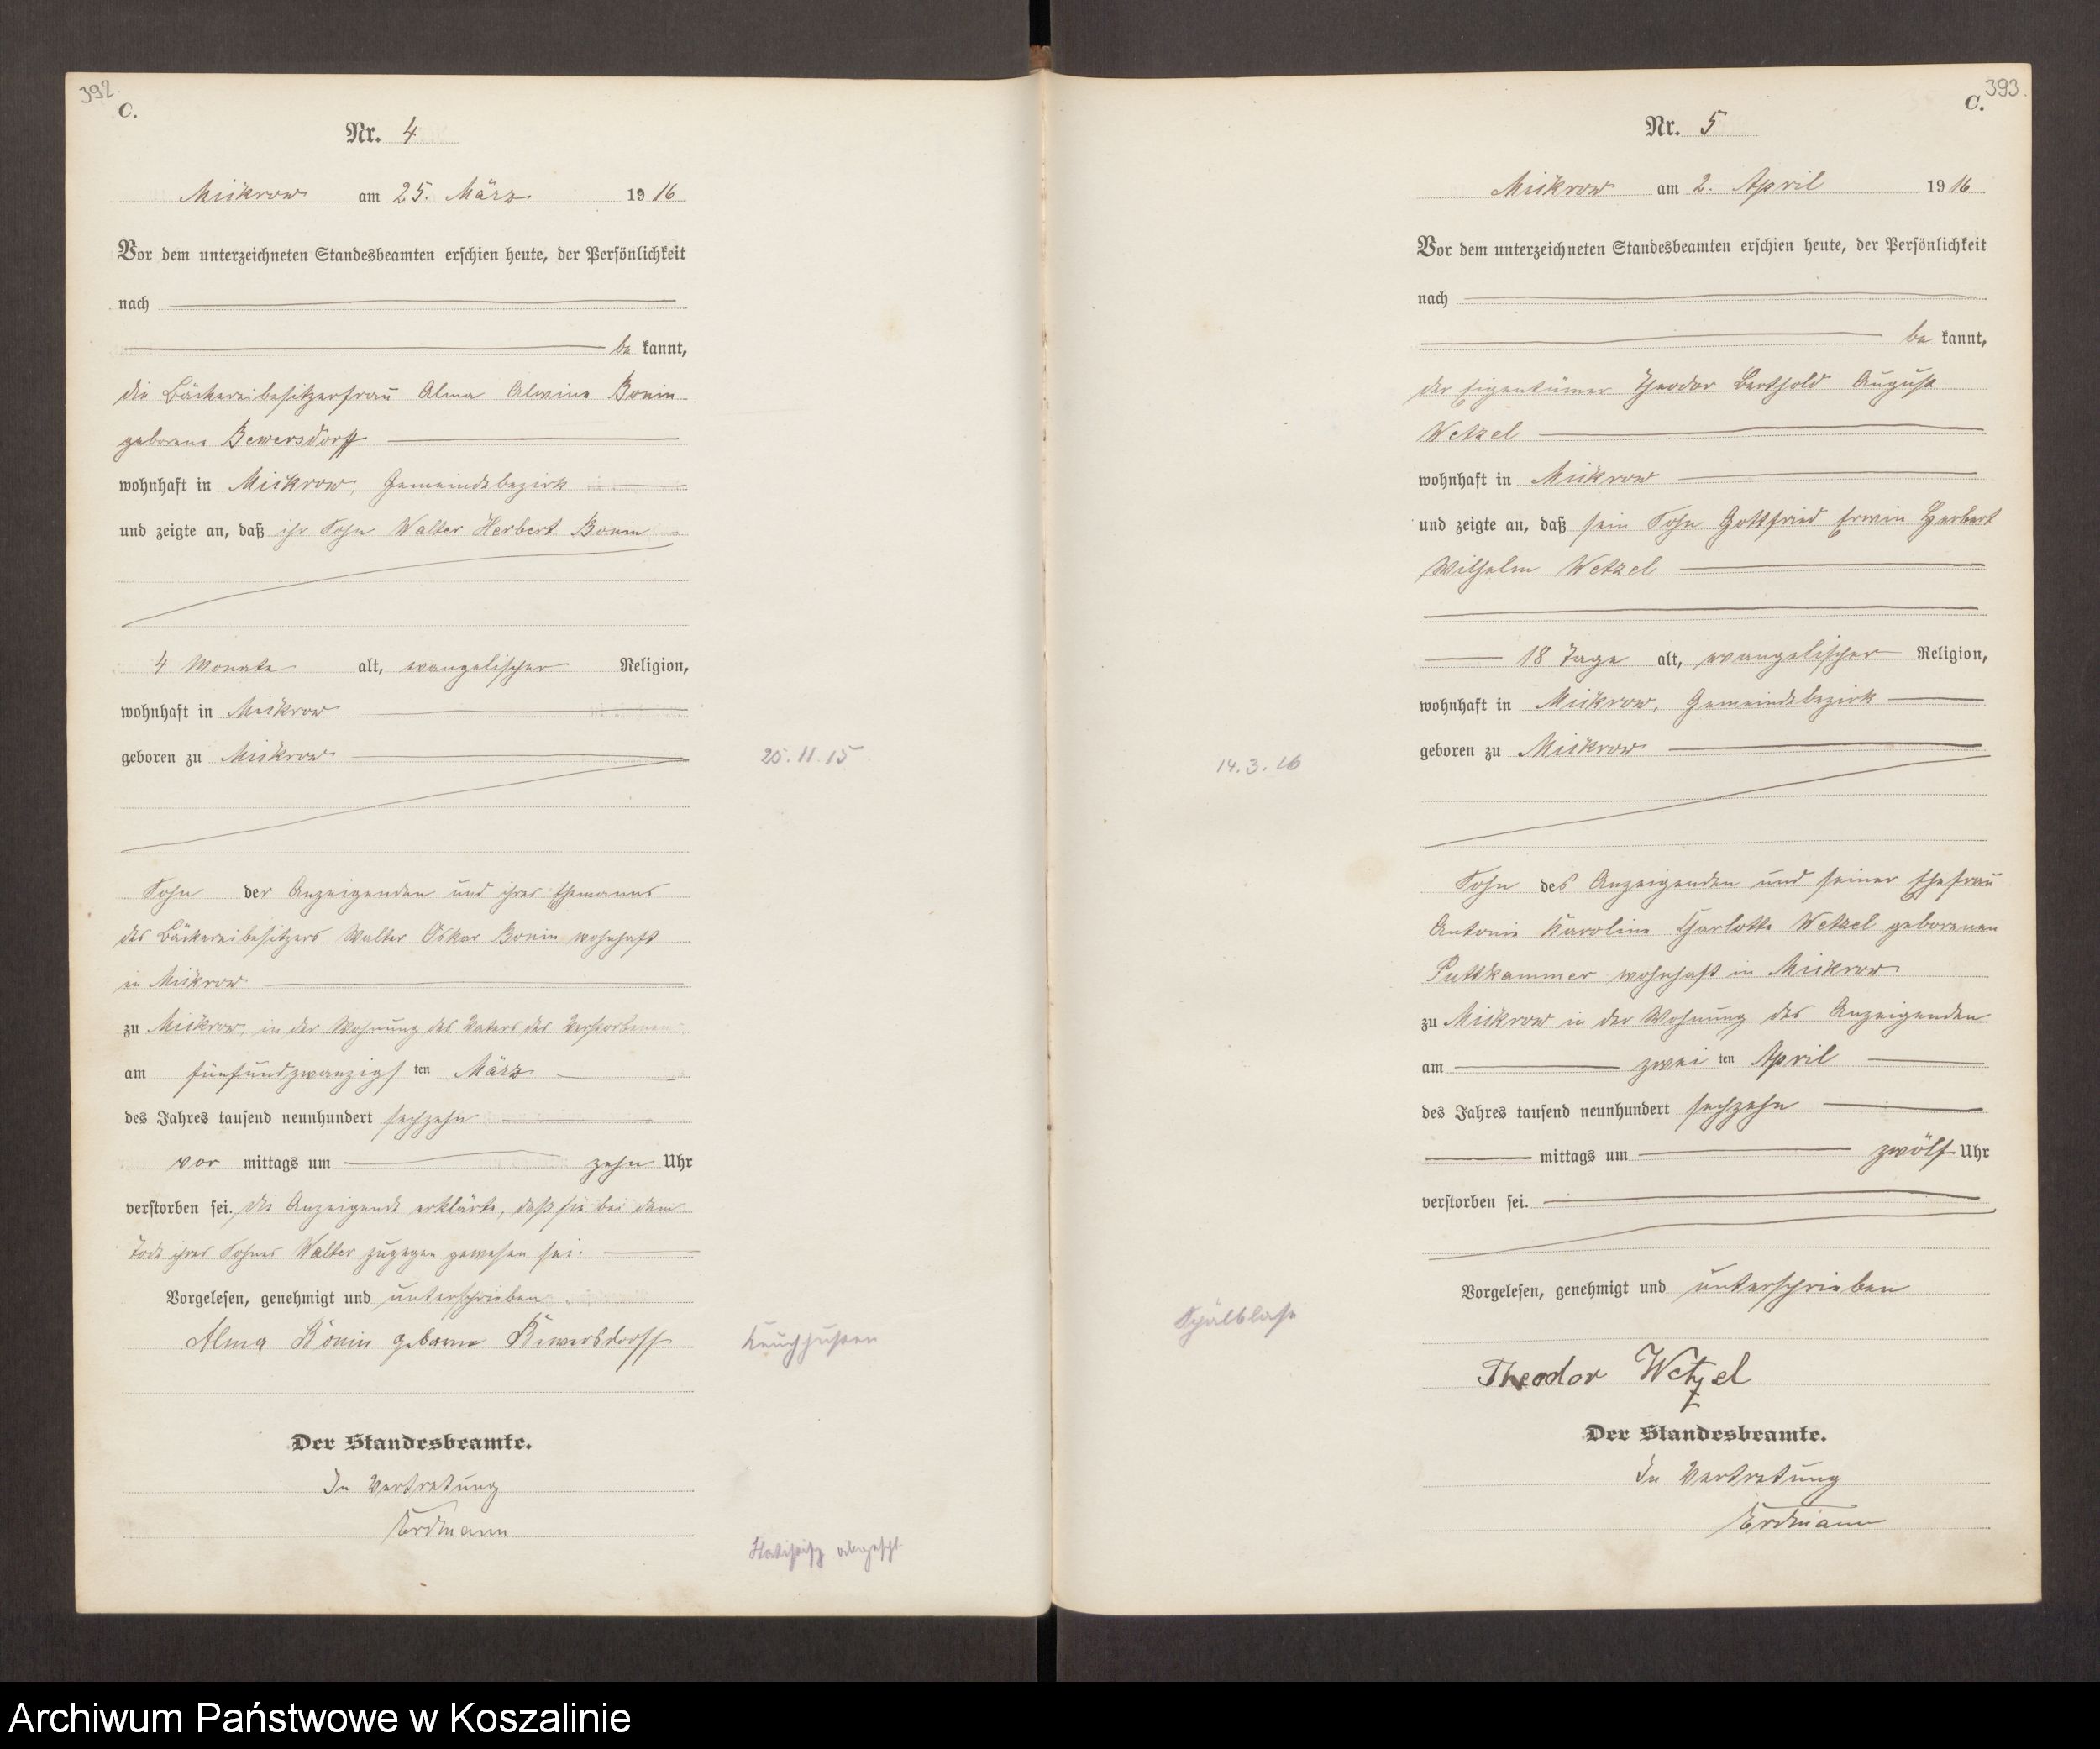 392
C.
Nr. 4
Mükrow am 25. März 1916
Vor dem unterzeichneten Standesbeamten erschien heute, der Persönlichkeit
nach
be kannt,
die Bäckereibesitzerfrau Alma Alwine Bonin
geborene Bewersdorff
wohnhaft in Mükrow, Gemeindebezirk
und zeigte an, daß ihr Sohn Walter Herbert Bonin
4 Monate alt, evangelischer Religion,
wohnhaft in Mükrow
geboren zu Mükrow
25.11.15
Sohn der Anzeigenden und ihres Ehemanns
des Bäckereibesitzers Walter Oskar Bonin wohnhaft
in Mükrow
zu Mükrow, in der Wohnung des Vaters des Verstorbenen
am fünfundzwanzigs ten März
des Jahres tausend neunhundert sechzehn
vor mittags um zehn Uhr
verstorben sei. Die Anzeigende erklärte, daß sie bei dem
Tode ihres Sohnes Walter zugegen gewesen sei.
Vorgelesen, genehmigt und unterschrieben
Alma Bonin geborne Bewersdorff
Keuchhusten
Der Standesbeamte.
In Vertretung
Erdmann
393.
C.
Nr. 5
Mükrow am 2. April 1916
Vor dem unterzeichneten Standesbeamten erschien heute, der Persönlichkeit
nach
be kannt,
der Eigentümer Theodor Berthold August
Wetzel
wohnhaft in Mükrow
und zeigte an, daß sein Sohn Gottfried Erwin Herbert
Wilhelm Wetzel
18 Tage alt, evangelischer Religion,
wohnhaft in Mükrow, Gemeindebezirk
geboren zu Mükrow
14.3.16
Sohn des Anzeigenden und seiner Ehefrau
Antonie Karoline Charlotte Wetzel geborenen
Puttkammer wohnhaft in Mükrow
zu Mükrow in der Wohnung des Anzeigenden
am zwei ten April
des Jahres tausend neunhundert sechzehn
mittags um zwölf Uhr
verstorben sei.
Vorgelesen, genehmigt und unterschrieben
Theodor Wetzel
Der Standesbeamte.
In Vertretung
Erdmann
Archiwum Państwowe w Koszalinie